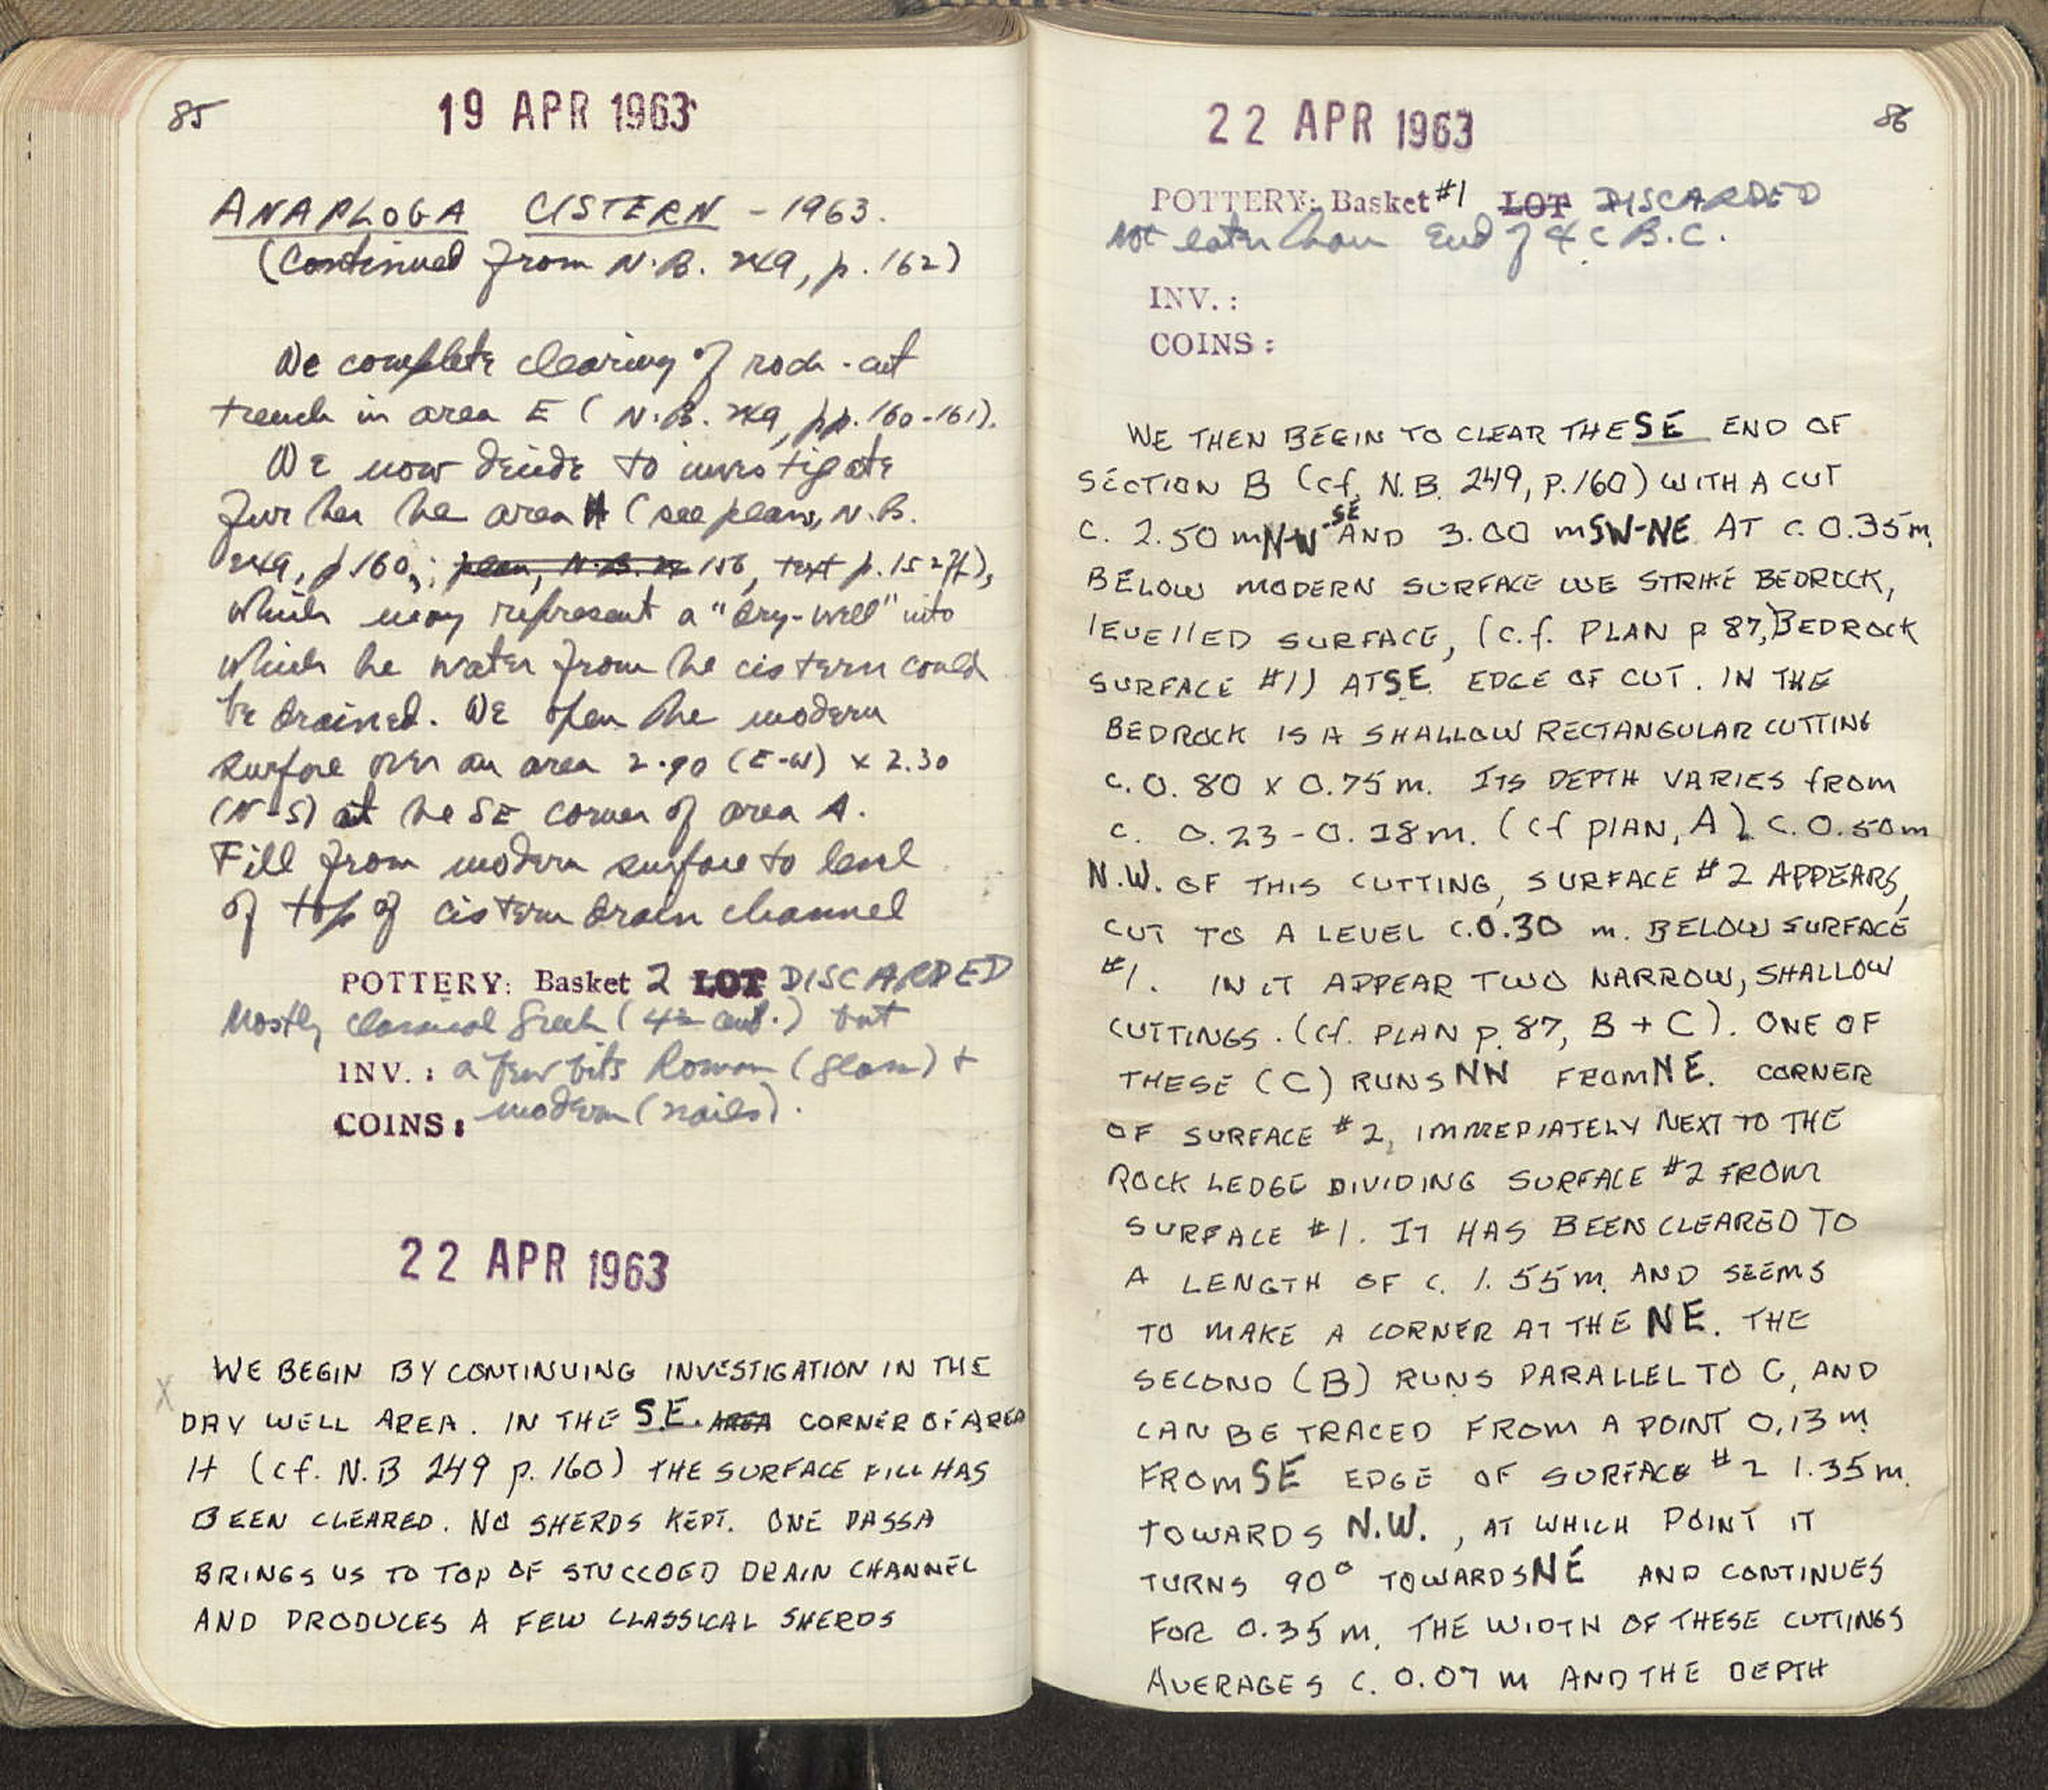 85
19 APR 1963
ANAPLOGA CISTERN - 1963.
(Continued from N.B. 249, p. 162)
We complete clearing of rock-cut
trench in area E (N.B. 249, pp. 160-161).
We now decide to investigate
further the area H (see plan, N.B.
249, p. 160; plan, N.B. 156, text p. 152ff),
which may represent a "dry-well" into
which the water from the cistern could
be drained. We open the modern
surface over an area 2.90 (E-W) x 2.30
(N-S) at the SE corner of area A.
Fill from modern surface to level
of top of cistern drain channel
POTTERY: Basket 2 LOT DISCARDED
Mostly classical Greek (4th cent.) but
INV.: a few bits Roman (glass) +
COINS: modern (nails).
22 APR 1963
X
WE BEGIN BY CONTINUING INVESTIGATION IN THE
DRY WELL AREA. IN THE S.E. AREA CORNER OF AREA
H (cf. N.B 249 p. 160) THE SURFACE FILL HAS
BEEN CLEARED. NO SHERDS KEPT. ONE PASSA
BRINGS US TO TOP OF STUCCOED DRAIN CHANNEL
AND PRODUCES A FEW CLASSICAL SHERDS
86
22 APR 1963
POTTERY: Basket #1 LOT DISCARDED
Not later than End of 4 c B.C.
INV.:
COINS:
WE THEN BEGIN TO CLEAR THE SE END OF
SECTION B (cf. N.B. 249, P. 160) WITH A CUT
C. 2.50 m NW-SE AND 3.00 m SW-NE AT C. 0.35 m.
BELOW MODERN SURFACE WE STRIKE BEDROCK,
LEVELLED SURFACE, (c.f. PLAN p 87, BEDROCK
SURFACE #1) AT SE. EDGE OF CUT. IN THE
BEDROCK IS A SHALLOW RECTANGULAR CUTTING
C. 0.80 x 0.75 m. ITS DEPTH VARIES from
C. 0.23 - 0.18 m. (cf PLAN, A). C. 0.50 m
N.W. OF THIS CUTTING, SURFACE #2 APPEARS,
CUT TO A LEVEL C. 0.30 m. BELOW SURFACE
#1. IN IT APPEAR TWO NARROW, SHALLOW
CUTTINGS. (cf. PLAN p. 87, B + C). ONE OF
THESE (C) RUNS NW FROM NE. CORNER
OF SURFACE #2, IMMEDIATELY NEXT TO THE
ROCK LEDGE DIVIDING SURFACE #2 FROM
SURFACE #1. IT HAS BEEN CLEARED TO
A LENGTH OF C. 1.55 m. AND SEEMS
TO MAKE A CORNER AT THE NE. THE
SECOND (B) RUNS PARALLEL TO C, AND
CAN BE TRACED FROM A POINT 0.13 m.
FROM SE EDGE OF SURFACE #2 1.35 m.
TOWARDS N.W., AT WHICH POINT IT
TURNS 90° TOWARDS NE AND CONTINUES
FOR 0.35 m. THE WIDTH OF THESE CUTTINGS
AVERAGES C. 0.07 m AND THE DEPTH